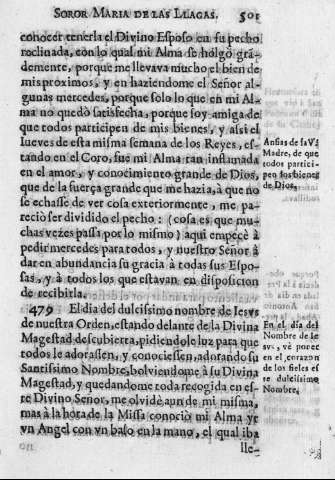 SOROR MARIA DE LAS LLAGAS. 501
conocer tenerla el Divino Esposo en su pecho
reclinada, con lo qual mi Alma se holgò grã-
demente, porque me llevava mucho el bien de
mis proximos, y en haziendome el Señor al-
gunas mercedes, porque solo lo que en mi Al-
ma no quedò satisfecha, porque soy amiga de
que todos participen de mis bienes, y assi el
Iueves de esta misma semana de los Reyes, es-
tando en el Coro, fue mi Alma tan inflamada
en el amor, y conocimiento grande de Dios,
que de la fuerça grande que me hazia, à que no
se echasse de ver cosa exteriormente, me pa-
reciò ser dividido el pecho: (cosa es que mu-
chas vezes passa por lo mismo) aqui empecè à
pedir mercedes para todos, y nuestro Señor à
dar en abundancia su gracia à todas sus Espo-
sas, y à todos los que estavan en disposicion
de recibirla.
479 El dia del dulcissimo nombre de Iesvs
de nuestra Orden, estando delante de la Divina
Magestad descubierta, pidiendole luz para que
todos le adorassen, y conociessen, adorando su
Santissimo Nombre, bolviendome à su Divina
Magestad, y quedandome toda regogida en es-
te Divino Señor, me olvidè aun de mi misma,
mas à la hora de la Missa conociò mi Alma ve
vn Angel con vn baso en la mano, el qual iba
lle-
Ansias de la V.
Madre, de que
todos partici-
pen los bienes
de Dios.
En el dia del
Nombre de Ie
svs, vè poner
en el corazon
de los fieles es
te dulcissimo
Nombre.